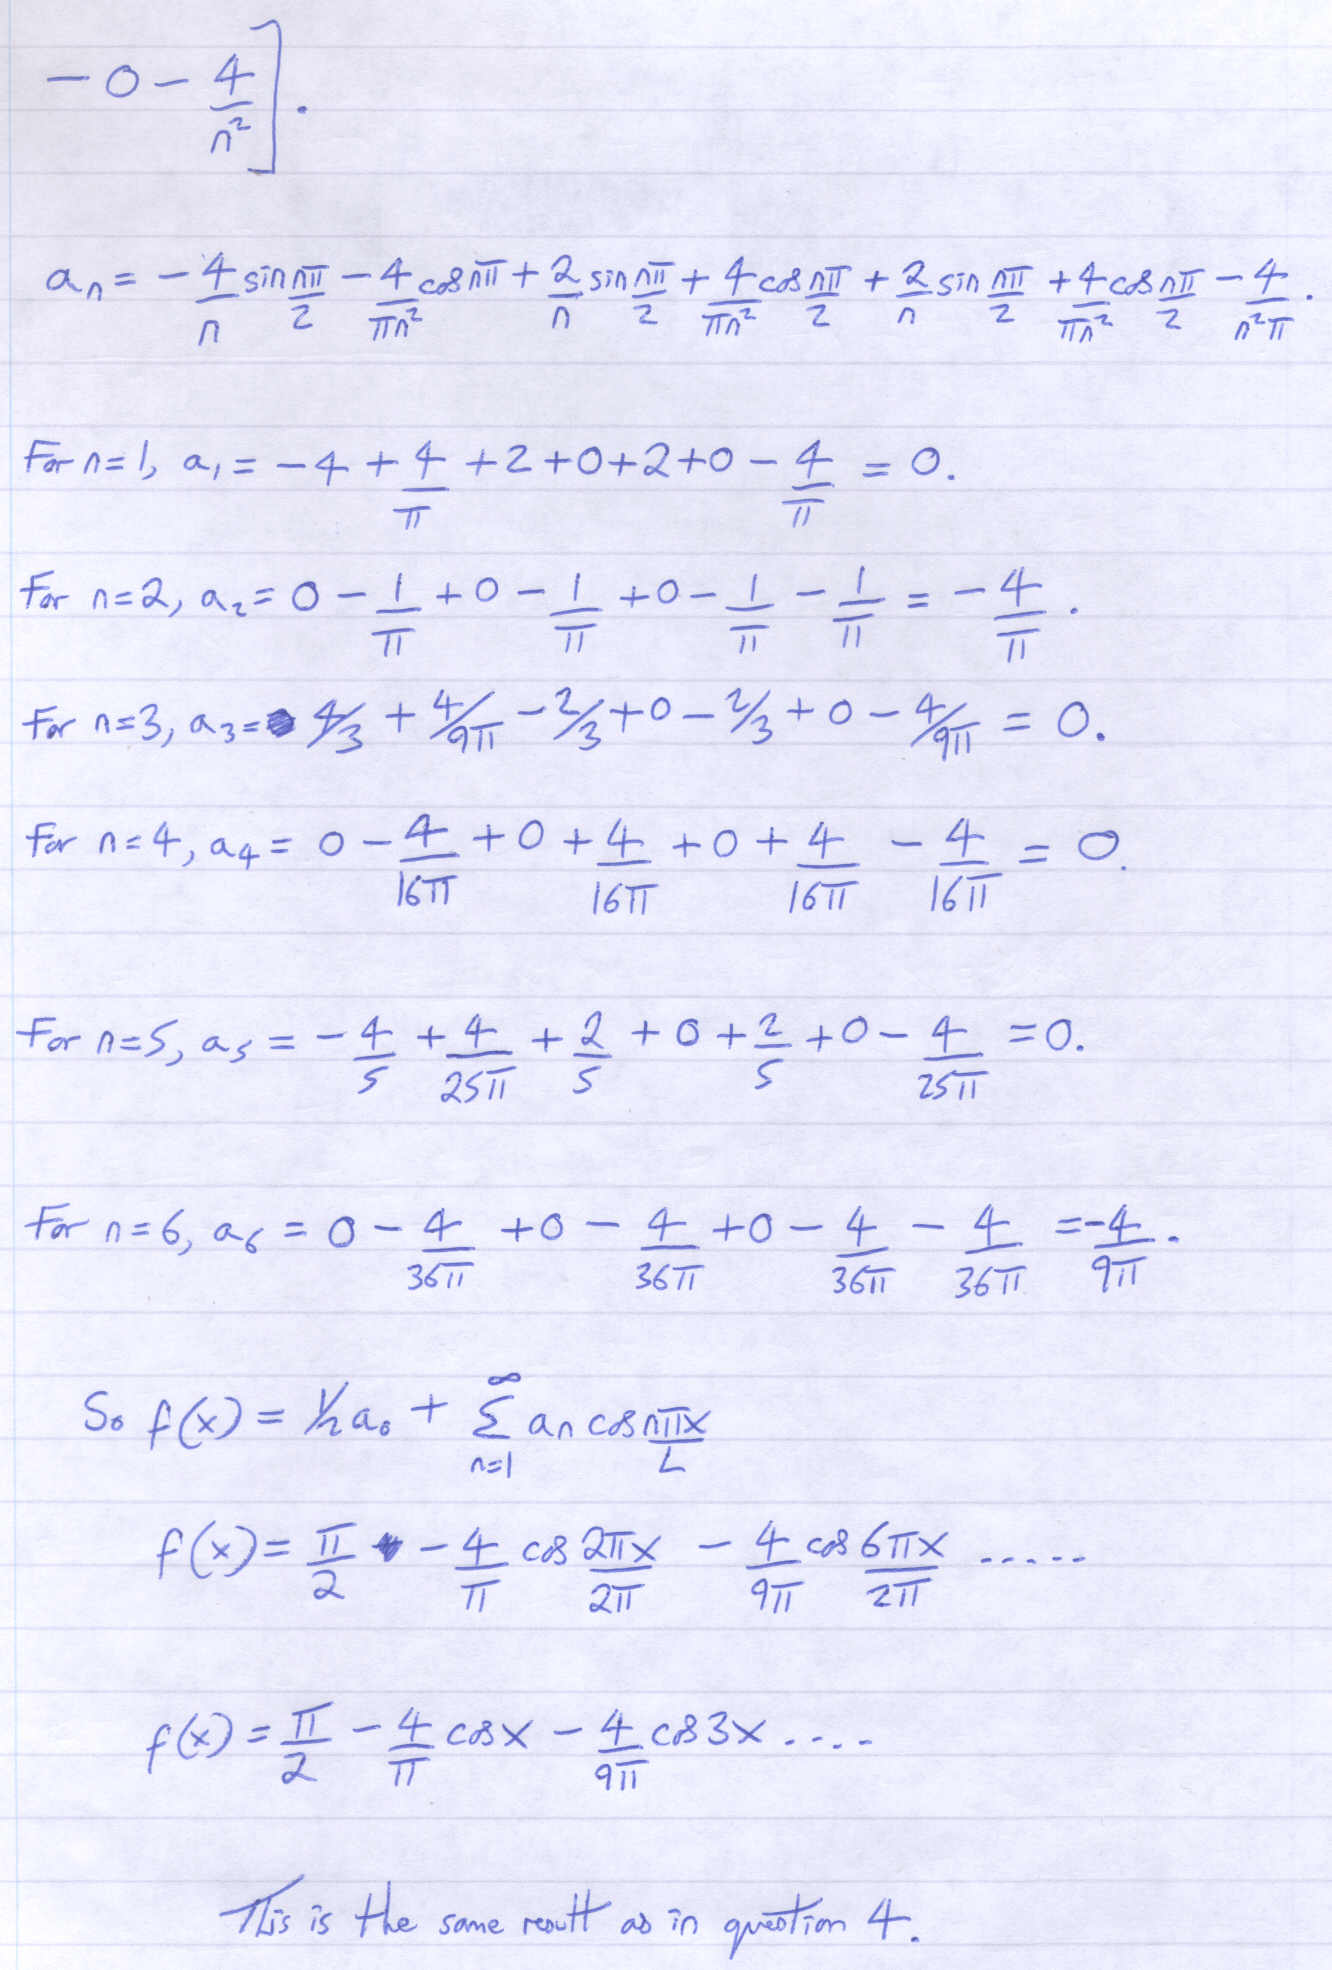 − 0 − 4/n² ] .
aₙ = − 4/n sin nπ/2 − 4/πn² cos nπ + 2/n sin nπ/2 + 4/πn² cos nπ/2 + 2/n sin nπ/2 + 4/πn² cos nπ/2 − 4/n²π .
For n=1, a₁ = −4 + 4/π + 2 + 0 + 2 + 0 − 4/π = 0.
For n=2, a₂ = 0 − 1/π + 0 − 1/π + 0 − 1/π − 1/π = − 4/π .
For n=3, a₃ = 4/3 + 4/9π − 2/3 + 0 − 2/3 + 0 − 4/9π = 0.
For n=4, a₄ = 0 − 4/16π + 0 + 4/16π + 0 + 4/16π − 4/16π = 0.
For n=5, a₅ = − 4/5 + 4/25π + 2/5 + 0 + 2/5 + 0 − 4/25π = 0.
For n=6, a₆ = 0 − 4/36π + 0 − 4/36π + 0 − 4/36π − 4/36π = − 4/9π .
So f(x) = ½ a₀ + ∞ Σ n=1 aₙ cos nπx/L
f(x) = π/2 − 4/π cos 2πx/2π − 4/9π cos 6πx/2π .....
f(x) = π/2 − 4/π cos x − 4/9π cos 3x ....
This is the same result as in question 4.